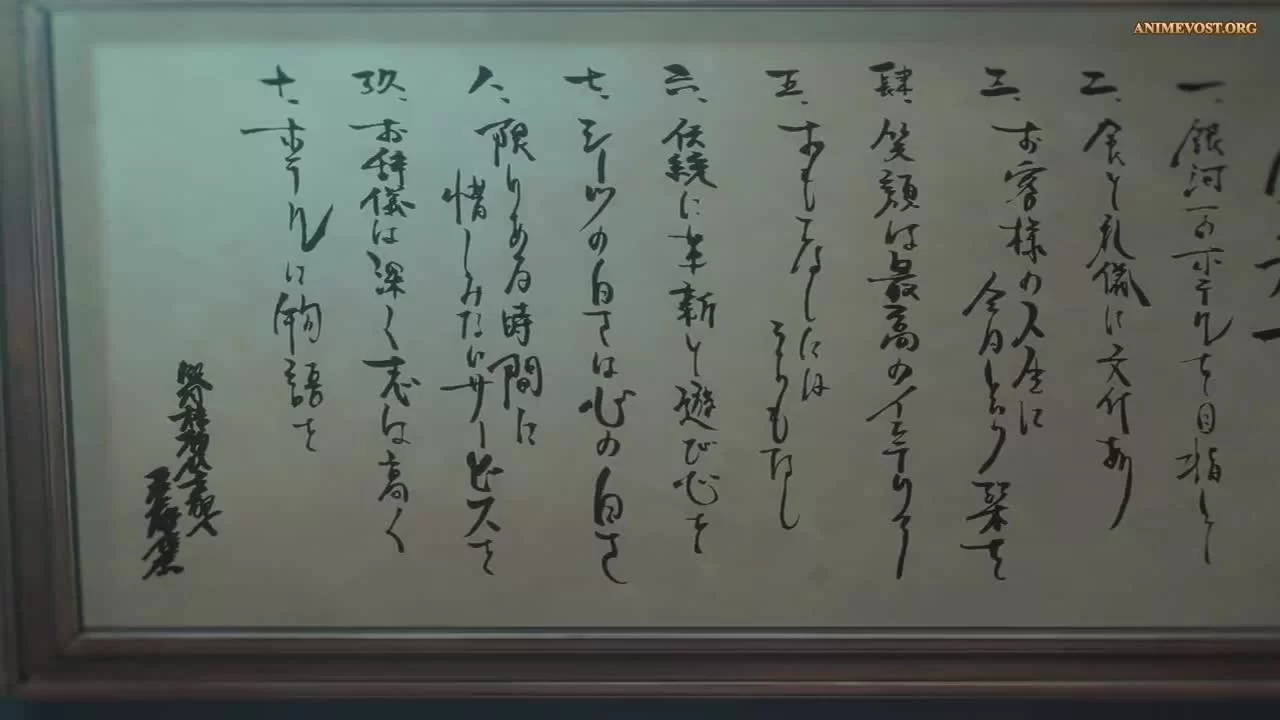 一、銀河一のホテルを目指して
二、礼儀に
三、お客様の人生に
今日という栞を
肆、笑顔は最高のインテリア
五、おもてなしには
うらもなし
六、伝統に革新と遊び心を
七、シーツの白さは心の白さ
八、限りある時間に
惜しみないサービスを
玖、お辞儀は深く志は高く
十、ホテルに物語を
ANIMEVOST.ORG